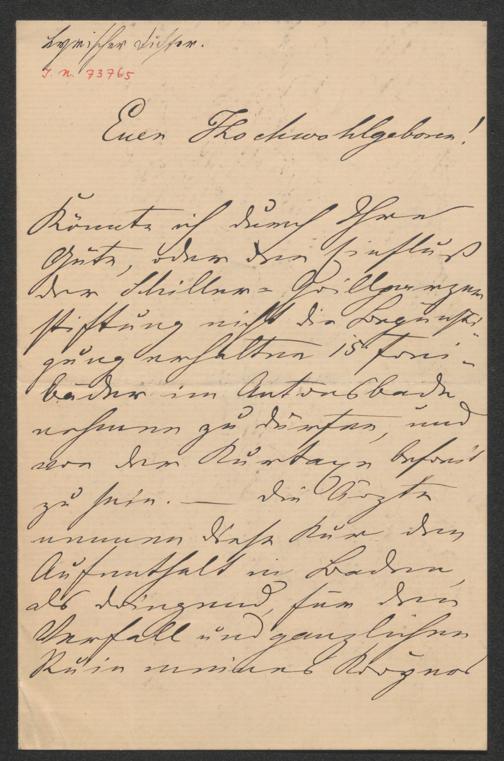 Lyrischer Dichter.
I. N. 73765
Euer Hochwohlgeboren!
Könnte ich durch Ihre
Güte, oder den Einfluß
der Schiller= Grillparzer
stiftung nicht die Begünsti
gung erhalten 15 Frei=
bäder im Antonsbade
nehmen zu dürfen, und
von der Kurtaxe befreit
zu sein. — Die Ärzte
nennen diese Kur, den
Aufenthalt in Baden,
als dringend, für den
Verfall und gänzlichen
Ruin meines Körpers